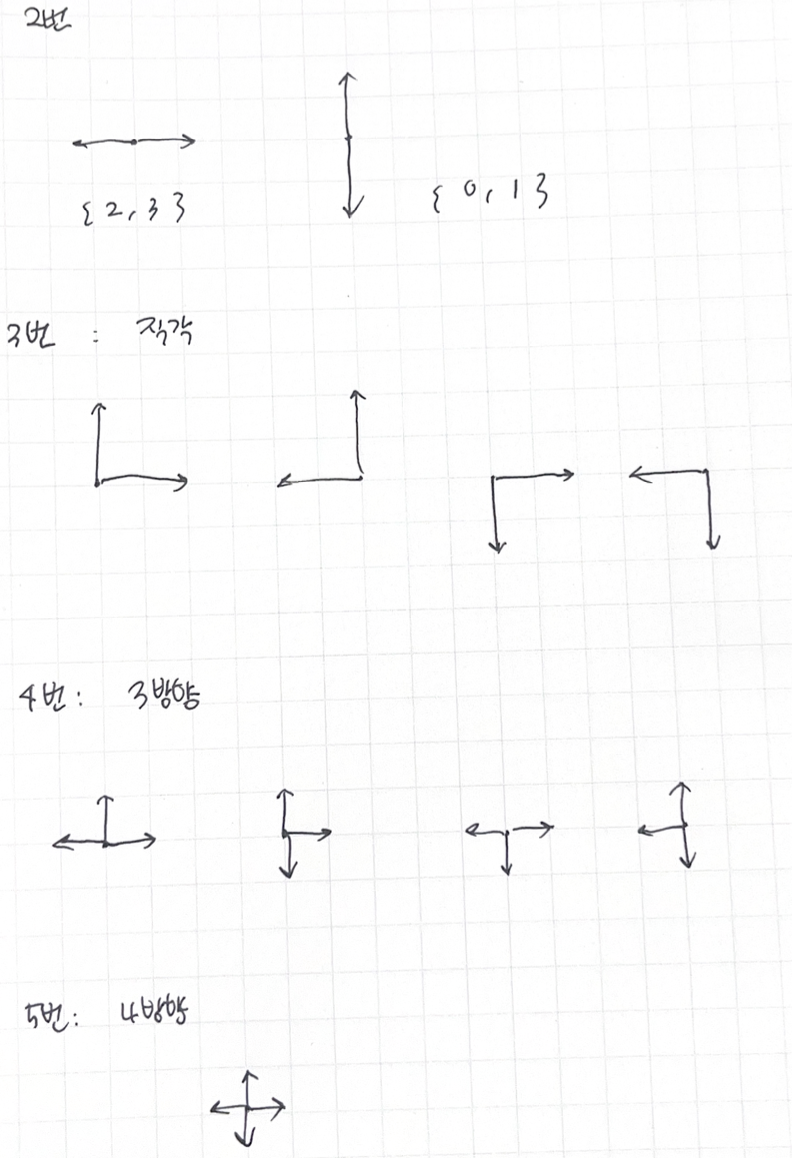 2번
{2, 3}
{0, 1}
3번 : 직각
4번: 3방향
5번: 4방향